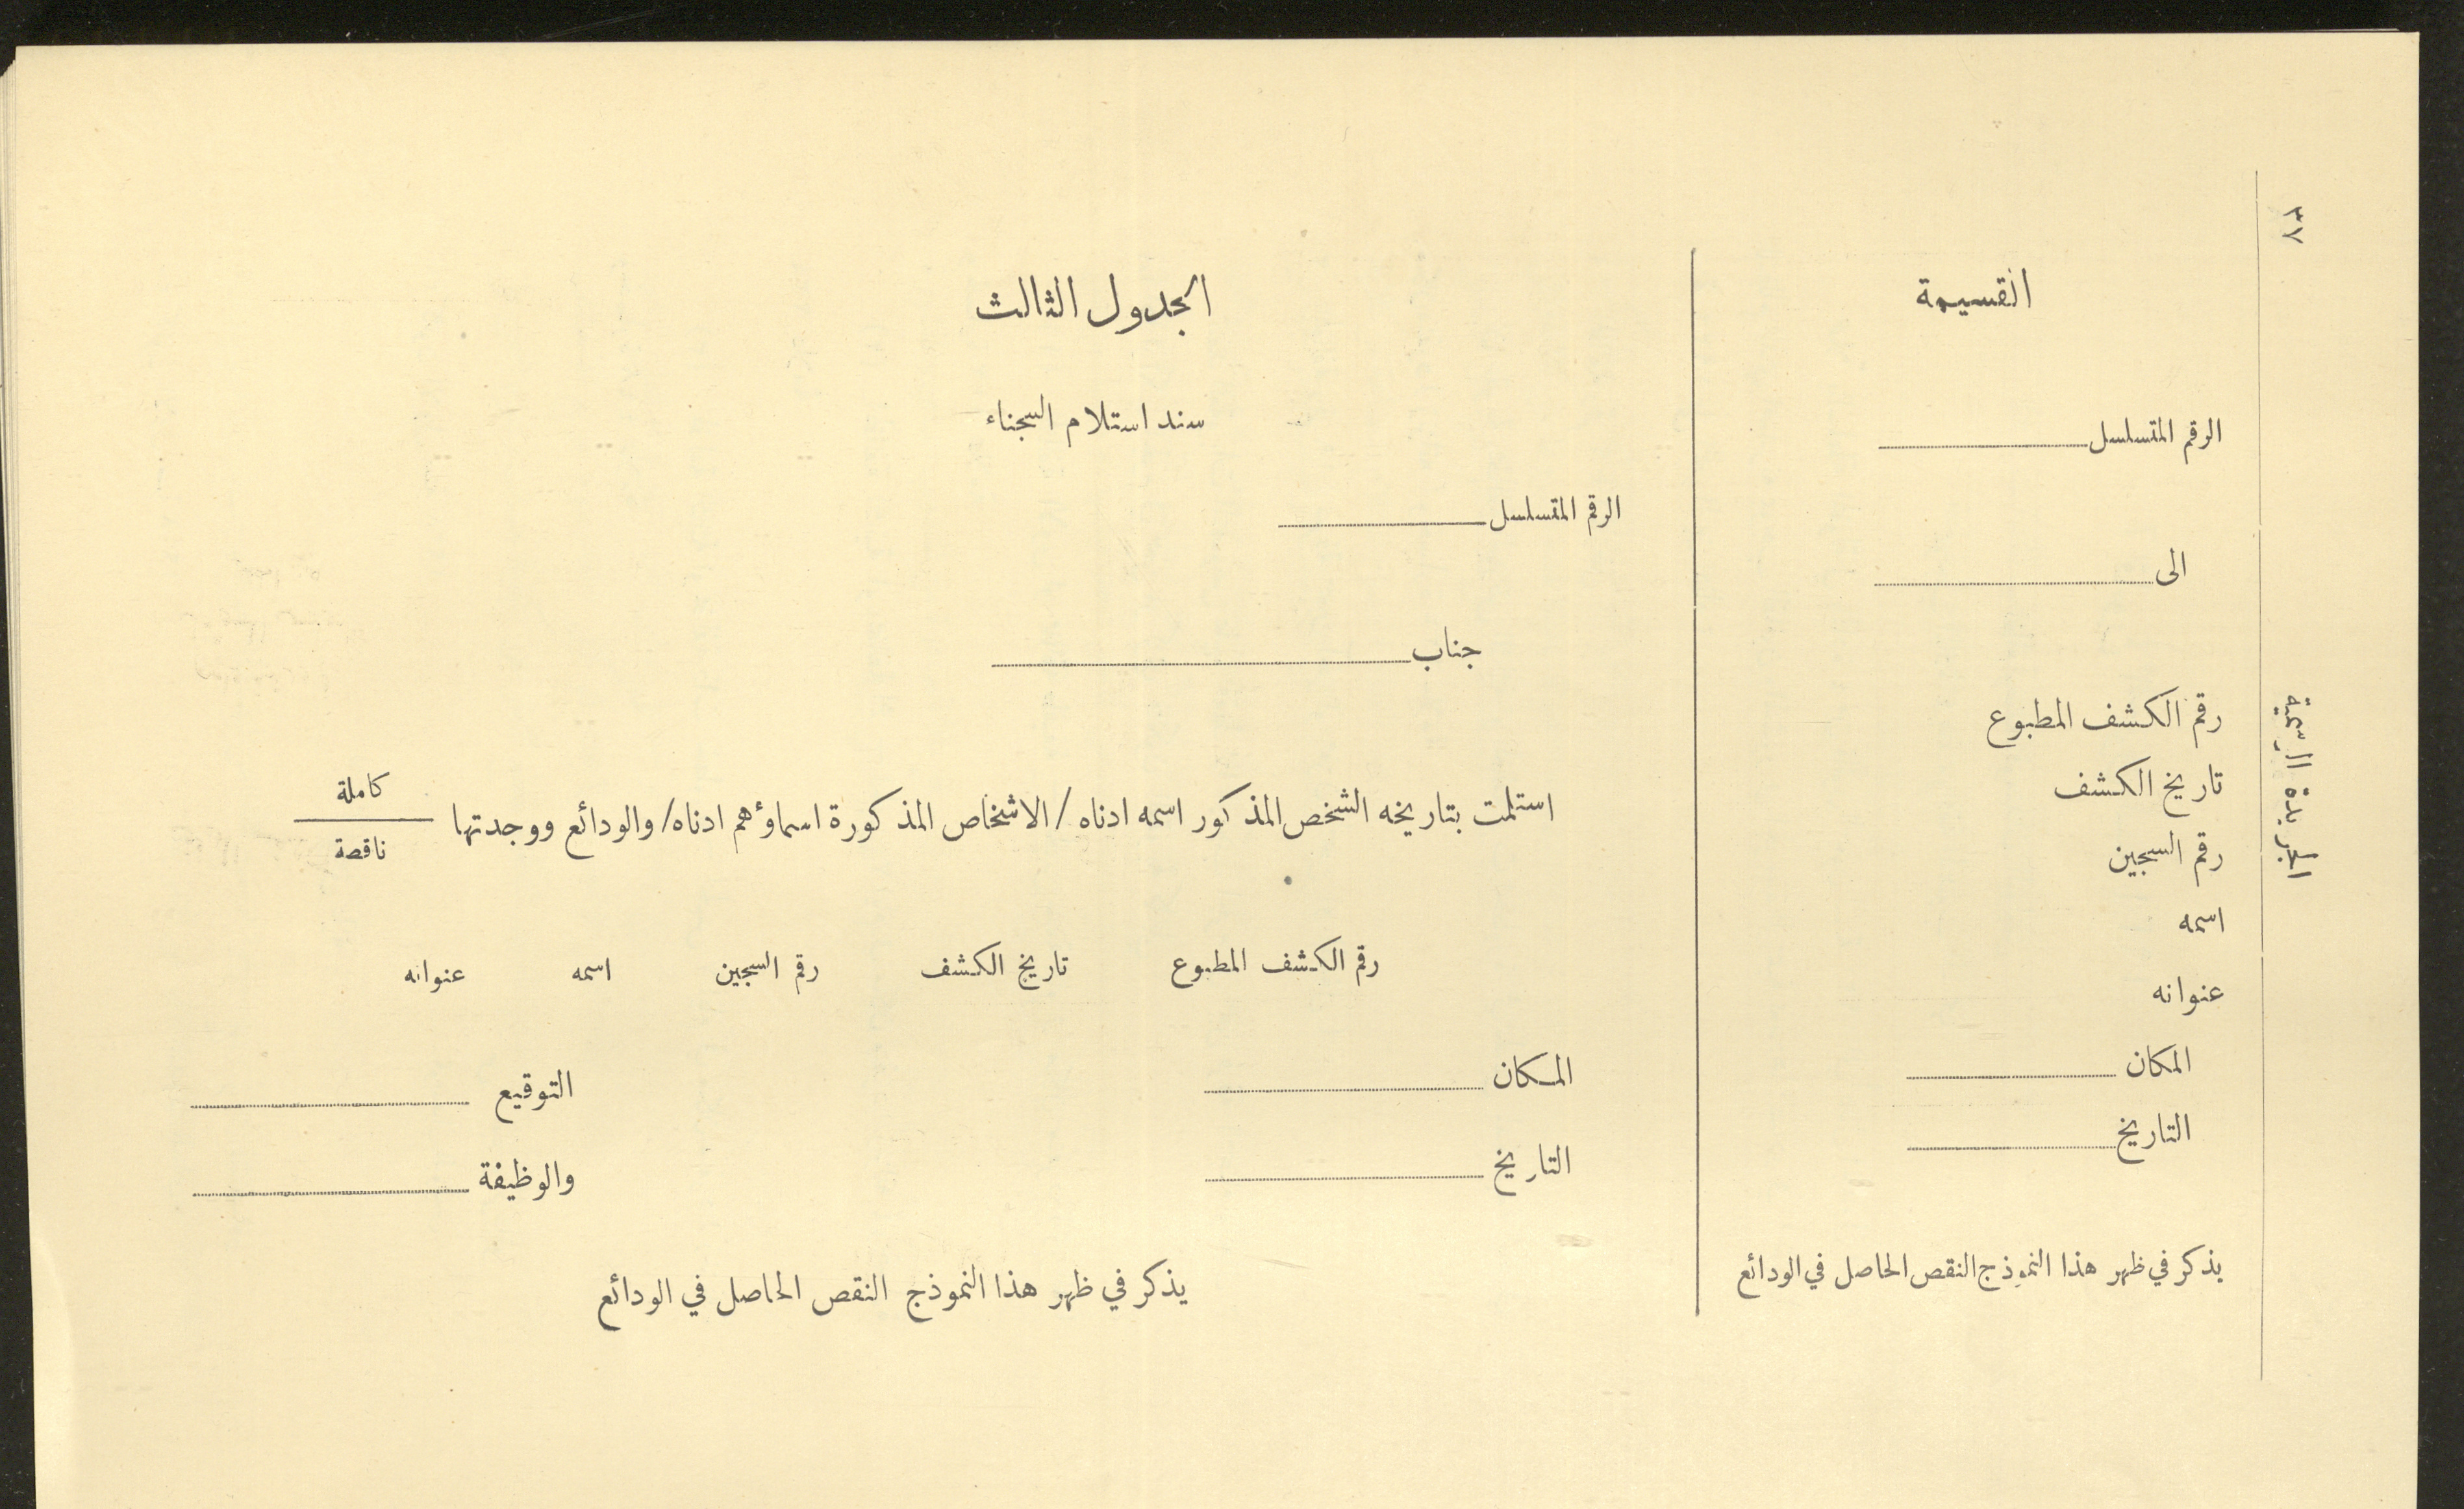 ٣٧
الجريدة الرسمية
القسيمة
الرقم المتسلسل
الى
رقم الكشف المطبوع
تاريخ الكشف
رقم السجين
اسمه
عنوانه
المكان
التاريخ
يذكر في ظهر هذا النموذج النقص الحاصل في الودائع
الجدول الثالث
سند استلام السجناء
الرقم المتسلسل
جناب
استلمت بتاريخه الشخص المذكور اسمه ادناه / الاشخاص المذكورة اسماؤهم ادناه/ والودائع ووجدتها كاملة
ناقصة
رقم الكشف المطبوع تاريخ الكشف رقم السجين اسمه عنوانه
المكان التوقيع
التاريخ والوظيفة
يذكر في ظهر هذا النموذج النقص الحاصل في الودائع